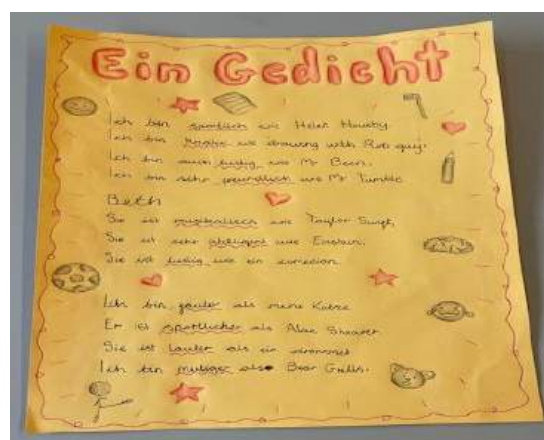 Ein Gedicht
Ich bin sportlich wie Helen Housby.
Ich bin wie drawing with Rob guy.
Ich bin auch lustig wie Mr Bean.
Ich bin sehr freundlich wie Mr Tumble
Beth
Sie ist musikalisch wie Taylor Swift,
Sie ist sehr intelligent wie Einstein.
Sie ist lustig wie ein comedian
Ich bin fauler als meine Katze
Er ist sportlicher als Alan Shearer
Sie ist lauter als ein
Ich bin mutiger als Bear Grylls.